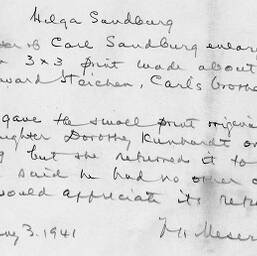 Helga Sandburg
of Carl Sandburg enlarg
3x3 print made about
ward Steichen, Carl's brothe
gave the small print origin
ughter Dorothy Kunhardt on
but she returned it to
said he had no other
would appreciate its re
3. 1941